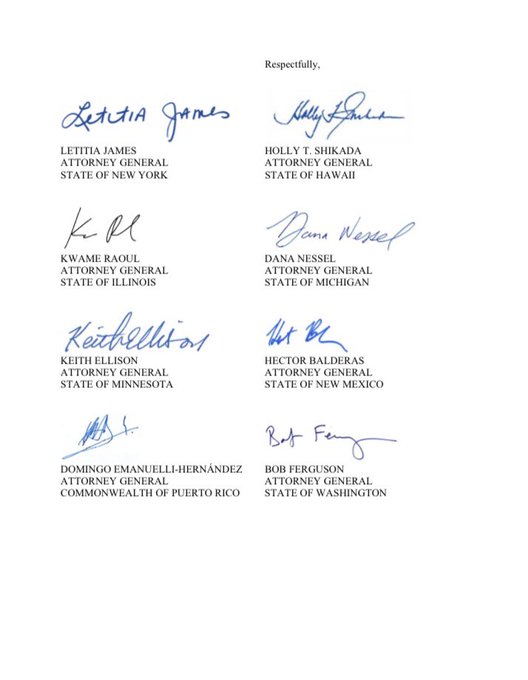 Respectfully,
Letitia James
LETITIA JAMES
ATTORNEY GENERAL
STATE OF NEW YORK
Holly T. Shikada
HOLLY T. SHIKADA
ATTORNEY GENERAL
STATE OF HAWAII
KWAME RAOUL
ATTORNEY GENERAL
STATE OF ILLINOIS
Dana Nessel
DANA NESSEL
ATTORNEY GENERAL
STATE OF MICHIGAN
Keith Ellison
KEITH ELLISON
ATTORNEY GENERAL
STATE OF MINNESOTA
HECTOR BALDERAS
ATTORNEY GENERAL
STATE OF NEW MEXICO
DOMINGO EMANUELLI-HERNÁNDEZ
ATTORNEY GENERAL
COMMONWEALTH OF PUERTO RICO
Bob Ferg
BOB FERGUSON
ATTORNEY GENERAL
STATE OF WASHINGTON